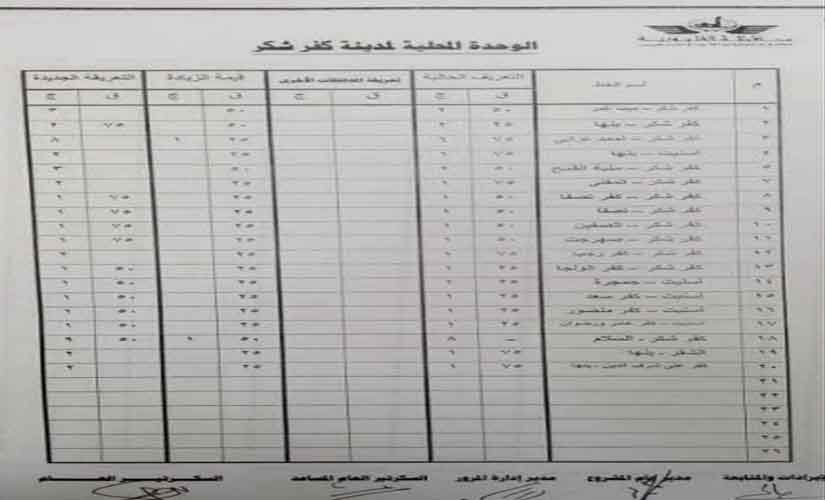 محافظة القليوبية
الوحدة المحلية لمدينة كفر شكر
م اسم الخط التعريفة الحالية تعريفة المحافظات الأخرى قيمة الزيادة التعريفة الجديدة
ق ج ق ج ق ج ق ج
١ كفر شكر – ميت غمر ٥٠ ٢ ٥٠ ٣
٢ كفر شكر – بنها ٢٥ ٢ ٥٠ ٧٥ ٢
٣ كفر شكر – احمد عرابى ٧٥ ٦ ٢٥ ١ ٨
٤ اسنيت – بنها ٧٥ ١ ٢٥ ٢
٥ كفر شكر – منية القمح ٥٠ ٢ ٥٠ ٣
٧ كفر شكر – ٧٥ ١ ٢٥ ٢
٨ كفر شكر – كفر تصفا ٥٠ ١ ٢٥ ٧٥ ١
٩ كفر شكر – تصفا ٥٠ ١ ٢٥ ٧٥ ١
١٠ كفر شكر – ٥٠ ١ ٢٥ ٧٥ ١
١١ كفر شكر – سهرجت ٥٠ ١ ٢٥ ٧٥ ١
١٢ كفر شكر – كفر رجب ٧٥ ١ ٢٥ ٢
١٣ كفر شكر – كفر الولجا ٢٥ ١ ٢٥ ٥٠ ١
١٤ اسنيت – جمجرة ٢٥ ١ ٢٥ ٥٠ ١
١٥ اسنيت – كفر سعد ٢٥ ١ ٢٥ ٥٠ ١
١٦ اسنيت – كفر منصور ٢٥ ١ ٢٥ ٥٠ ١
١٧ اسنيت – كفر عامر ورضوان ٢٥ ١ ٢٥ ٥٠ ١
١٨ كفر شكر – السلام – ٨ ٥٠ ١ ٥٠ ٩
١٩ الشقر – بنها ٧٥ ١ ٢٥ ٢
٢٠ كفر على شرف الدين – بنها ٧٥ ١ ٢٥ ٢
٢١
٢٢
٢٣
٢٤
٢٥
٢٦
والمتابعة مدير عام المشروع مدير إدارة المرور السكرتير العام المساعد السكرتير العام